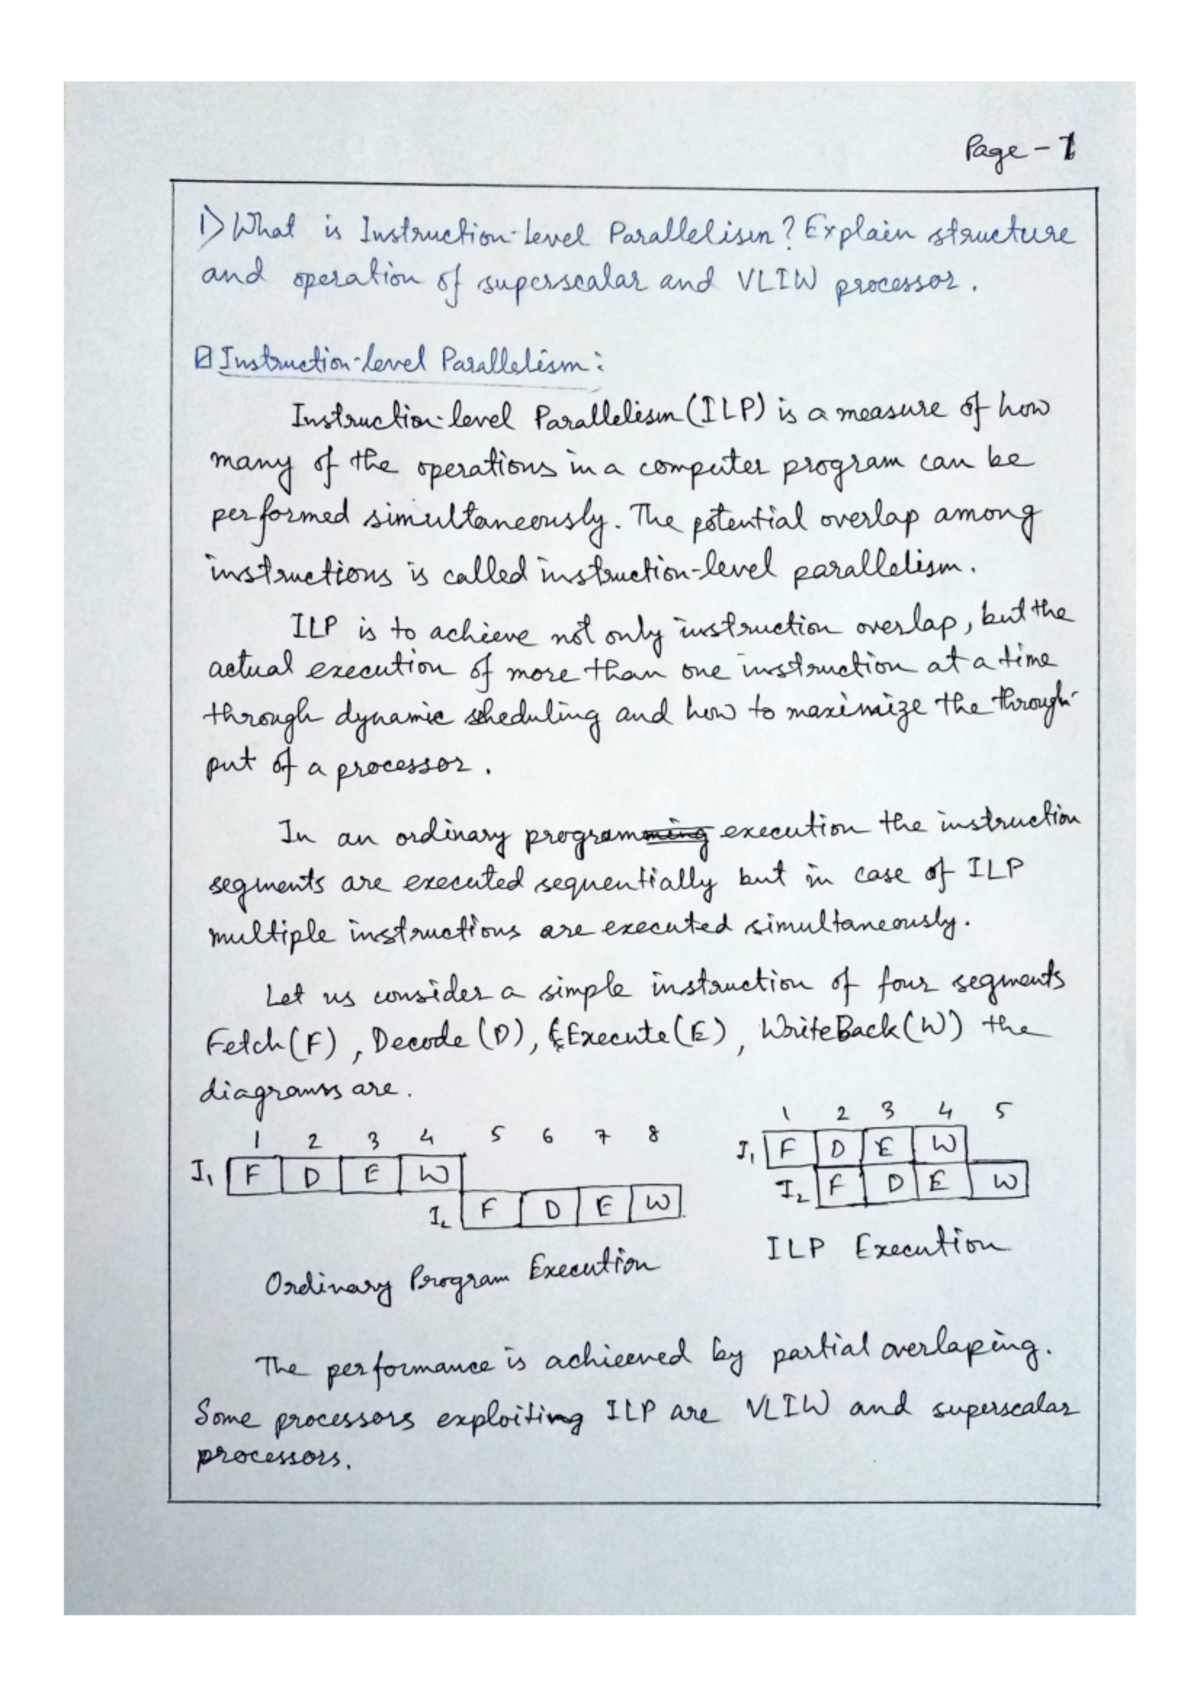 Page - 1
1) What is Instruction-Level Parallelism? Explain structure
and operation of superscalar and VLIW processor.
Instruction-level Parallelism:
Instruction-level Parallelism (ILP) is a measure of how
many of the operations in a computer program can be
performed simultaneously. The potential overlap among
instructions is called instruction-level parallelism.
ILP is to achieve not only instruction overlap, but the
actual execution of more than one instruction at a time
through dynamic sheduling and how to maximize the through-
put of a processor.
In an ordinary program execution the instruction
segments are executed sequentially but in case of ILP
multiple instructions are executed simultaneously.
Let us consider a simple instruction of four segments
Fetch (F), Decode (D), Execute (E), WriteBack (W) the
diagrams are.
1 2 3 4 5 6 7 8
I1 F D E W
I2 F D E W
Ordinary Program Execution
1 2 3 4 5
I1 F D E W
I2 F D E W
ILP Execution
The performance is achieved by partial overlaping.
Some processors exploiting ILP are VLIW and superscalar
processors.